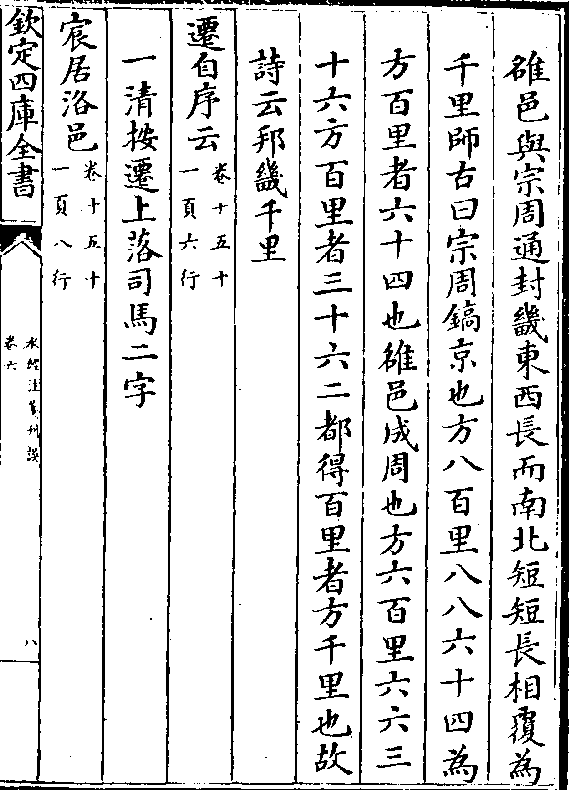 雒邑與宗周通封畿東西長而南北短短長相覆為
千里師古曰宗周鎬京也方八百里八八六十四為
方百里者六十四也雒邑成周也方六百里六六三
十六方百里者三十六二都得百里者方千里也故
詩云邦畿千里
遷自序云
卷十五十
一頁六行
一清按遷上落司馬二字
宸居洛邑
卷十五十
一頁八行
欽定四庫全書
水經注箋刊誤
卷六
八